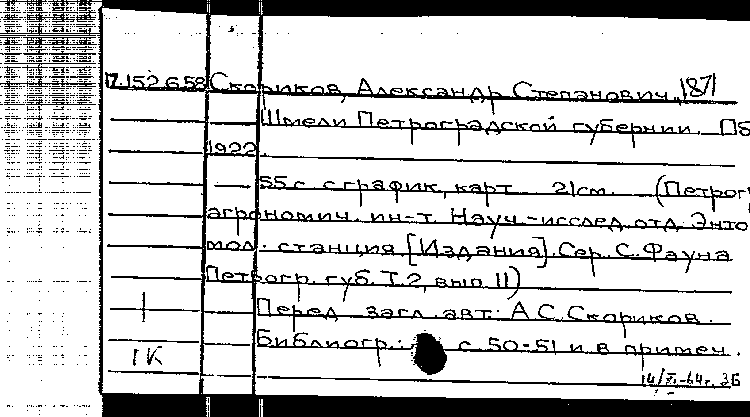 17.152.658 Скориков, Александр Степанович, 1871
Шмели Петроградской губернии. Пб
1922.
— 55 с с график, карт 21 см. (Петрогр
агрономич. ин-т. Науч.-исслед. отд. Энто
мол. станция [Издания]. Сер. С. Фауна
Петрогр. губ. Т. 2, вып. 11)
Перед загл. авт.: А. С. Скориков.
Библиогр.: с. 50-51 и в примеч.
1К